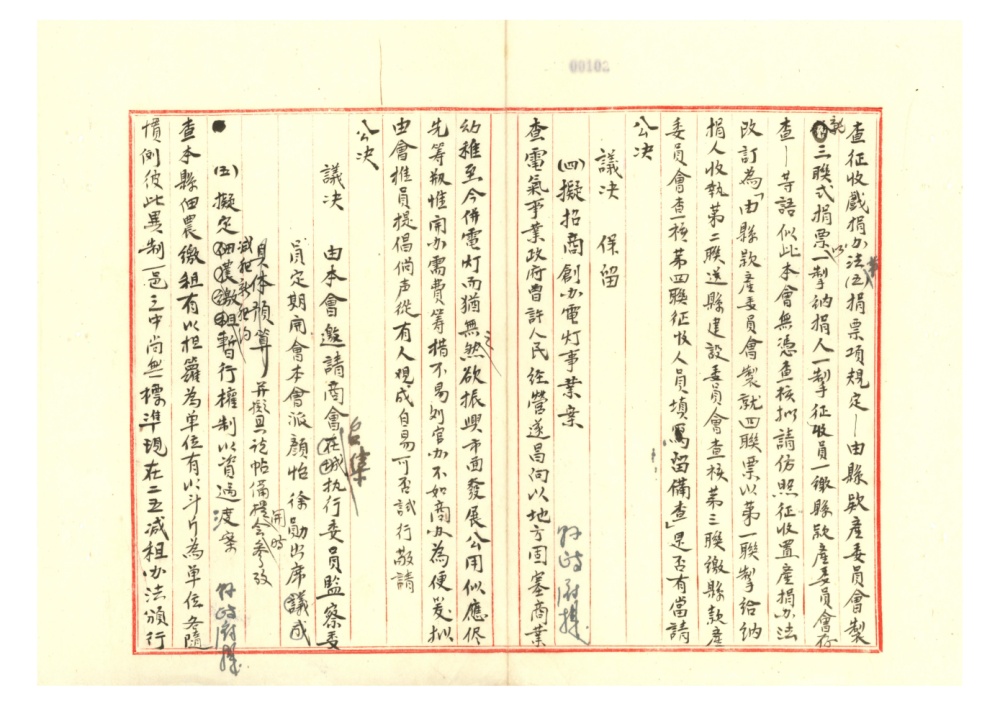 00102
查征收戲捐办法第五捐票項規定－由縣欵產委員會製
就三联式捐票以一掣纳捐人一掣征收員一繳縣欵產委員會存
查－等語似此本會無憑查核拟請仿照征收置產捐办法
改訂為「由縣款產委員會製就四联票以第一联掣给纳
捐人收执第二联送縣建設委員會查核第三联繳縣款產
委員會查核第四联征收人員填寫留備查」是否有當請
公决
議决 保留
(四)擬招商創办電灯事業案 縣政府提
查電氣事業政府曹許人民经營遂昌向以地方固塞商業
幼稚至今併電灯而猶無之然欲振興市面發展公用似應侭
先筹瓶惟開办需費筹措不易则官办不如商办為便爰拟
由會推員提倡倘声從有人观成自易可否試行敬請
公决
議决 由本會邀請商會召集在城执行委員監察委
員定期開會本會派顏怡徐勛出席議成
具体預算并擬具說帖備提會開時参考
(五)擬定佃農繳租減租新租约暫行權制以資過渡案 縣政府提
查本縣佃農繳租有以担籮為单位有以斗斤為单位各隨
慣例彼此異制一邑之中尚無標準現在二五减租办法頒行